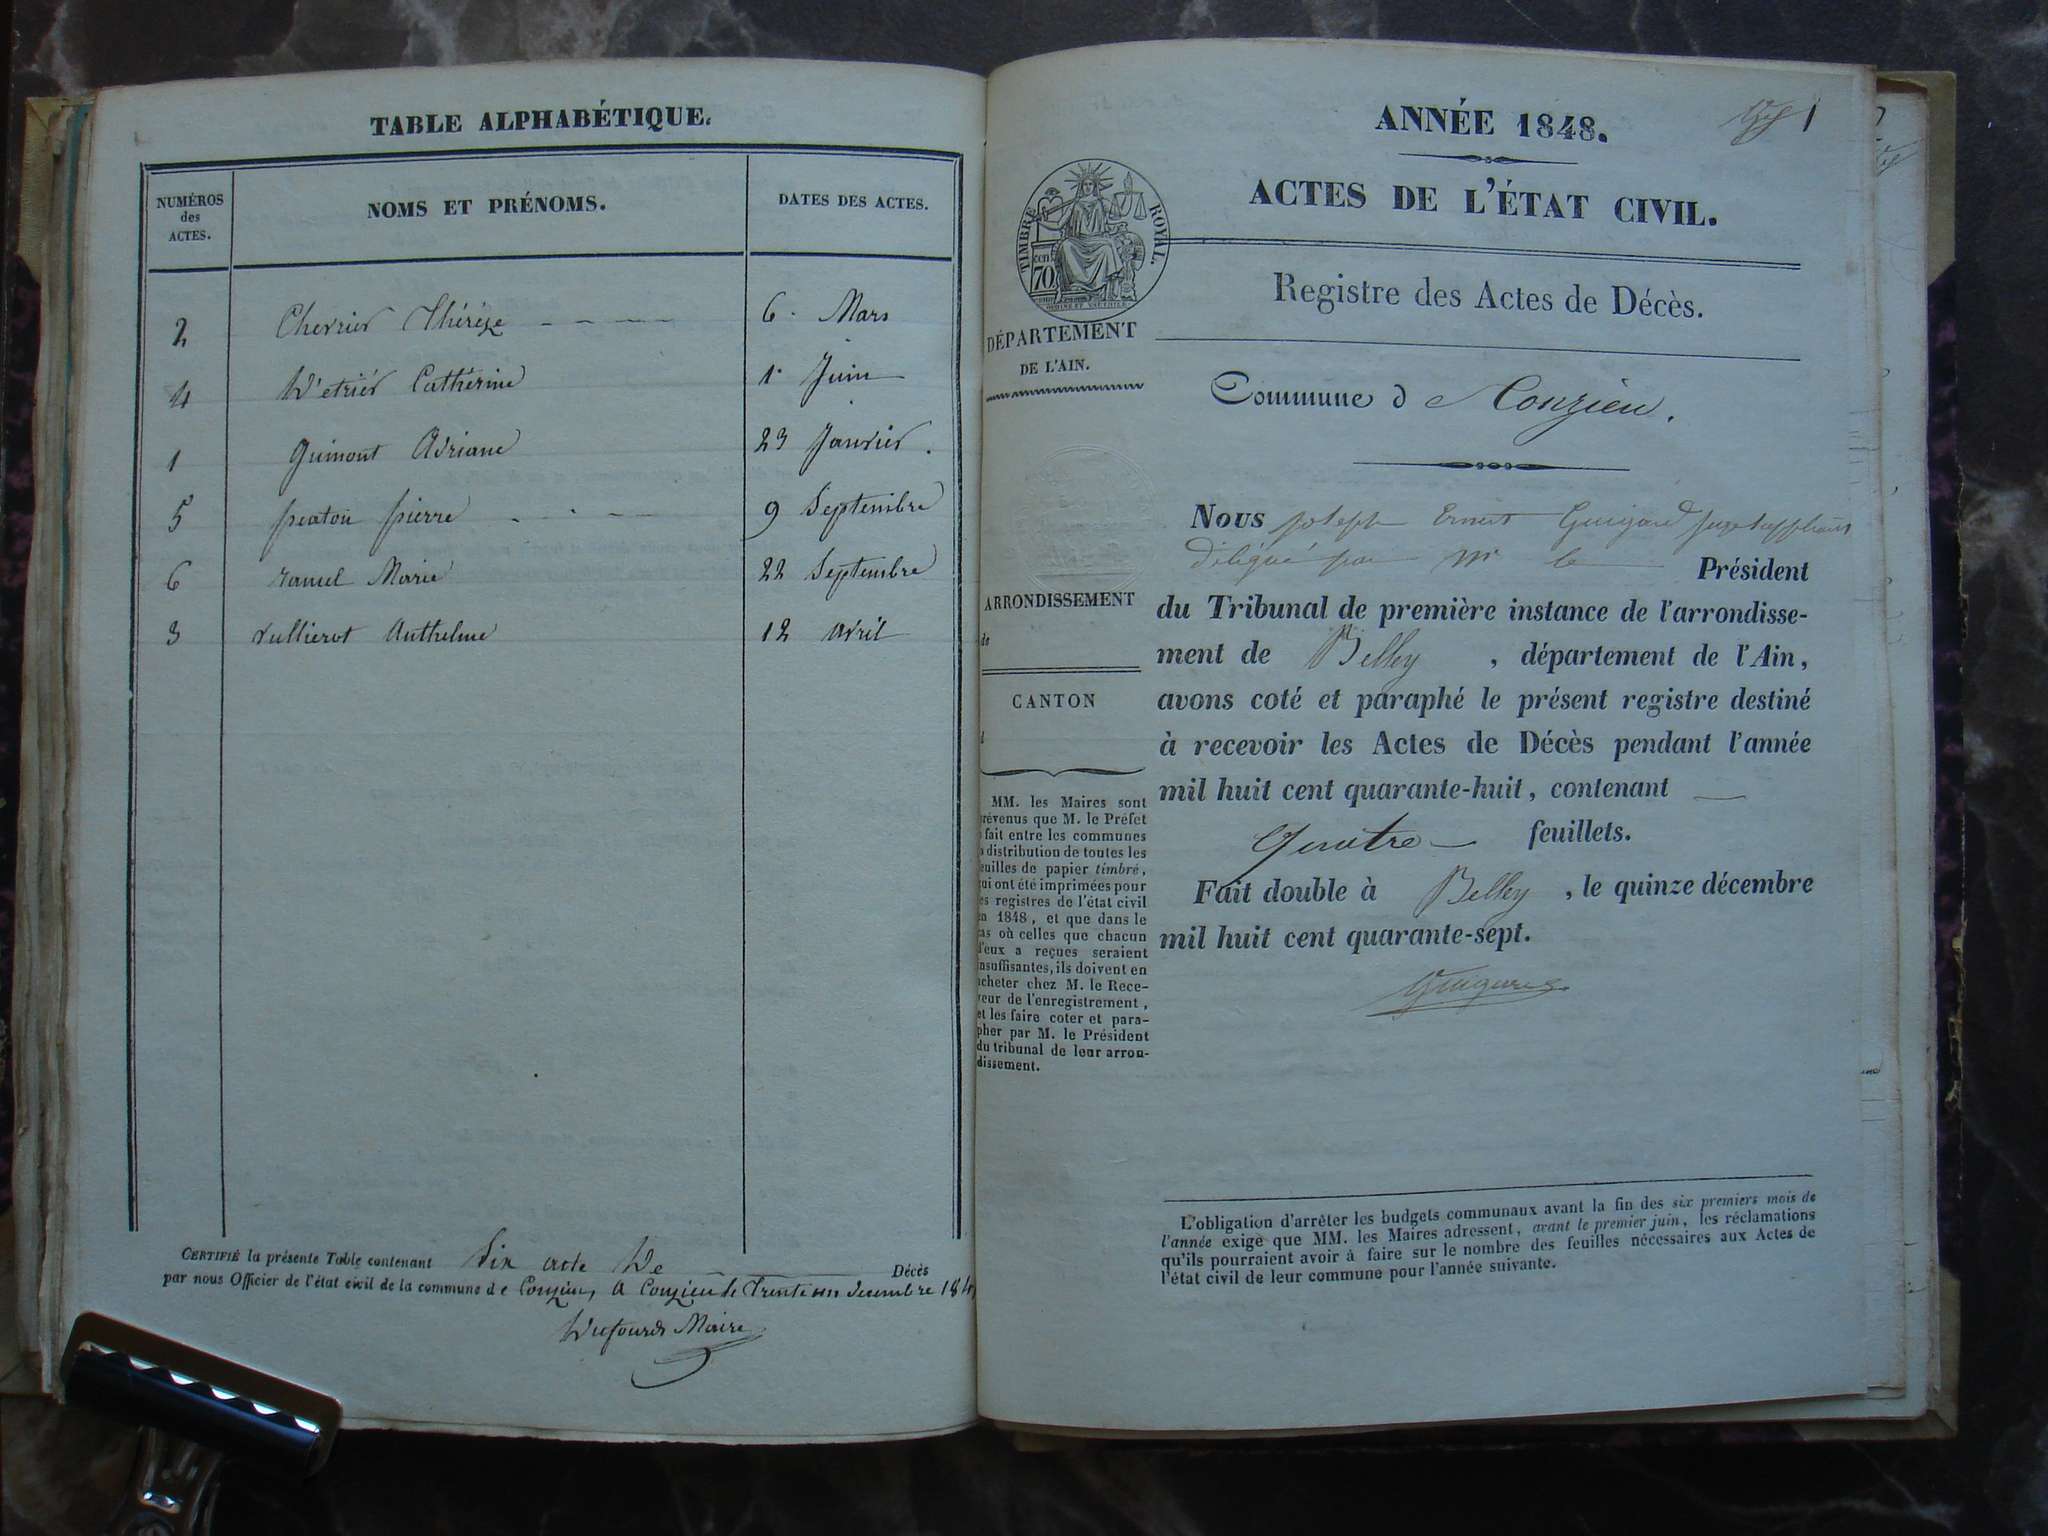 TABLE ALPHABÉTIQUE.
NUMÉROS des ACTES.
NOMS ET PRÉNOMS.
DATES DES ACTES.
2 Chevrier Thérèze 6 Mars
4 D'etrier Cathérine 1er Juin
1 Guimont Adriane 23 Janvier.
5 peaton pierre 9 Septembre
6 ramel Marie 22 Septembre
3 vullierot Anthelme 12 avril
CERTIFIÉ la présente Table contenant Six acte De Décès
par nous Officier de l'état civil de la commune de Conzieu, a Conzieu le Trente un decembre 184
Dufour Maire
ANNÉE 1848.
1
ACTES DE L'ÉTAT CIVIL.
TIMBRE ROYAL.
cen 70
Registre des Actes de Décès.
DÉPARTEMENT
DE L'AIN.
Commune d Conzieu.
ARRONDISSEMENT
de
CANTON
d
MM. les Maires sont
révenus que M. le Préfet
fait entre les communes
distribution de toutes les
euilles de papier timbré,
ui ont été imprimées pour
es registres de l'état civil
n 1848, et que dans le
as où celles que chacun
d'eux a reçues seraient
nsuffisantes, ils doivent en
cheter chez M. le Rece-
veur de l'enregistrement,
et les faire coter et para-
pher par M. le Président
du tribunal de leur arron-
dissement.
Nous joseph Ernest Guigard juge suppléant
délégué par Mr le Président
du Tribunal de première instance de l'arrondisse-
ment de Belley, département de l'Ain,
avons coté et paraphé le présent registre destiné
à recevoir les Actes de Décès pendant l'année
mil huit cent quarante-huit, contenant
Quatre feuillets.
Fait double à Belley, le quinze décembre
mil huit cent quarante-sept.
L'obligation d'arrêter les budgets communaux avant la fin des six premiers mois de
l'année exige que MM. les Maires adressent, avant le premier juin, les réclamations
qu'ils pourraient avoir à faire sur le nombre des feuilles nécessaires aux Actes de
l'état civil de leur commune pour l'année suivante.